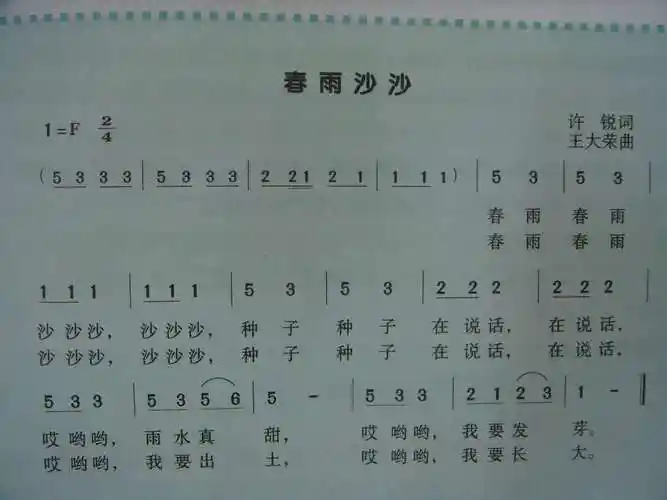 春雨沙沙
1=F 2/4
许 锐词
王大荣曲
(5 3 3 3 | 5 3 3 3 | 2 21 2 1 | 1 1 1) | 5 3 | 5 3
春 雨 春 雨
春 雨 春 雨
1 1 1 | 1 1 1 | 5 3 | 5 3 | 2 2 2 | 2 2 2
沙 沙沙, 沙沙沙, 种 子 种 子 在 说话, 在 说话,
沙 沙沙, 沙沙沙, 种 子 种 子 在 说话, 在 说话,
5 3 3 | 5 3 5 6 | 5 - | 5 3 3 | 2 1 2 3 | 1 - ‖
哎 哟哟, 雨水真 甜, 哎 哟哟, 我要发 芽。
哎 哟哟, 我要出 土, 哎 哟哟, 我要长 大。